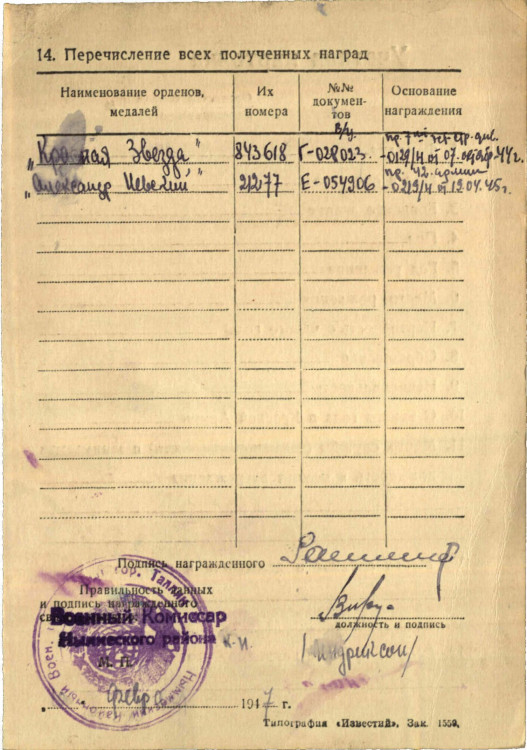 14. Перечисление всех полученных наград
Наименование орденов, медалей
Их номера
№№ документов
Основание награждения
в/у.
„Красная Звезда"
843618
Г-028023.
-0129/н от 07.
44 г.
„Александр Невский"
21277
Е-054906
пр. 42. армии
-0219/н от 19.04.45 г.
Подпись награжденного
Правильность данных
и подпись награжденного
Военный Комиссар
Нымеского района
М. П.
должность и подпись
1947 г.
Типография «Известий». Зак. 1559.